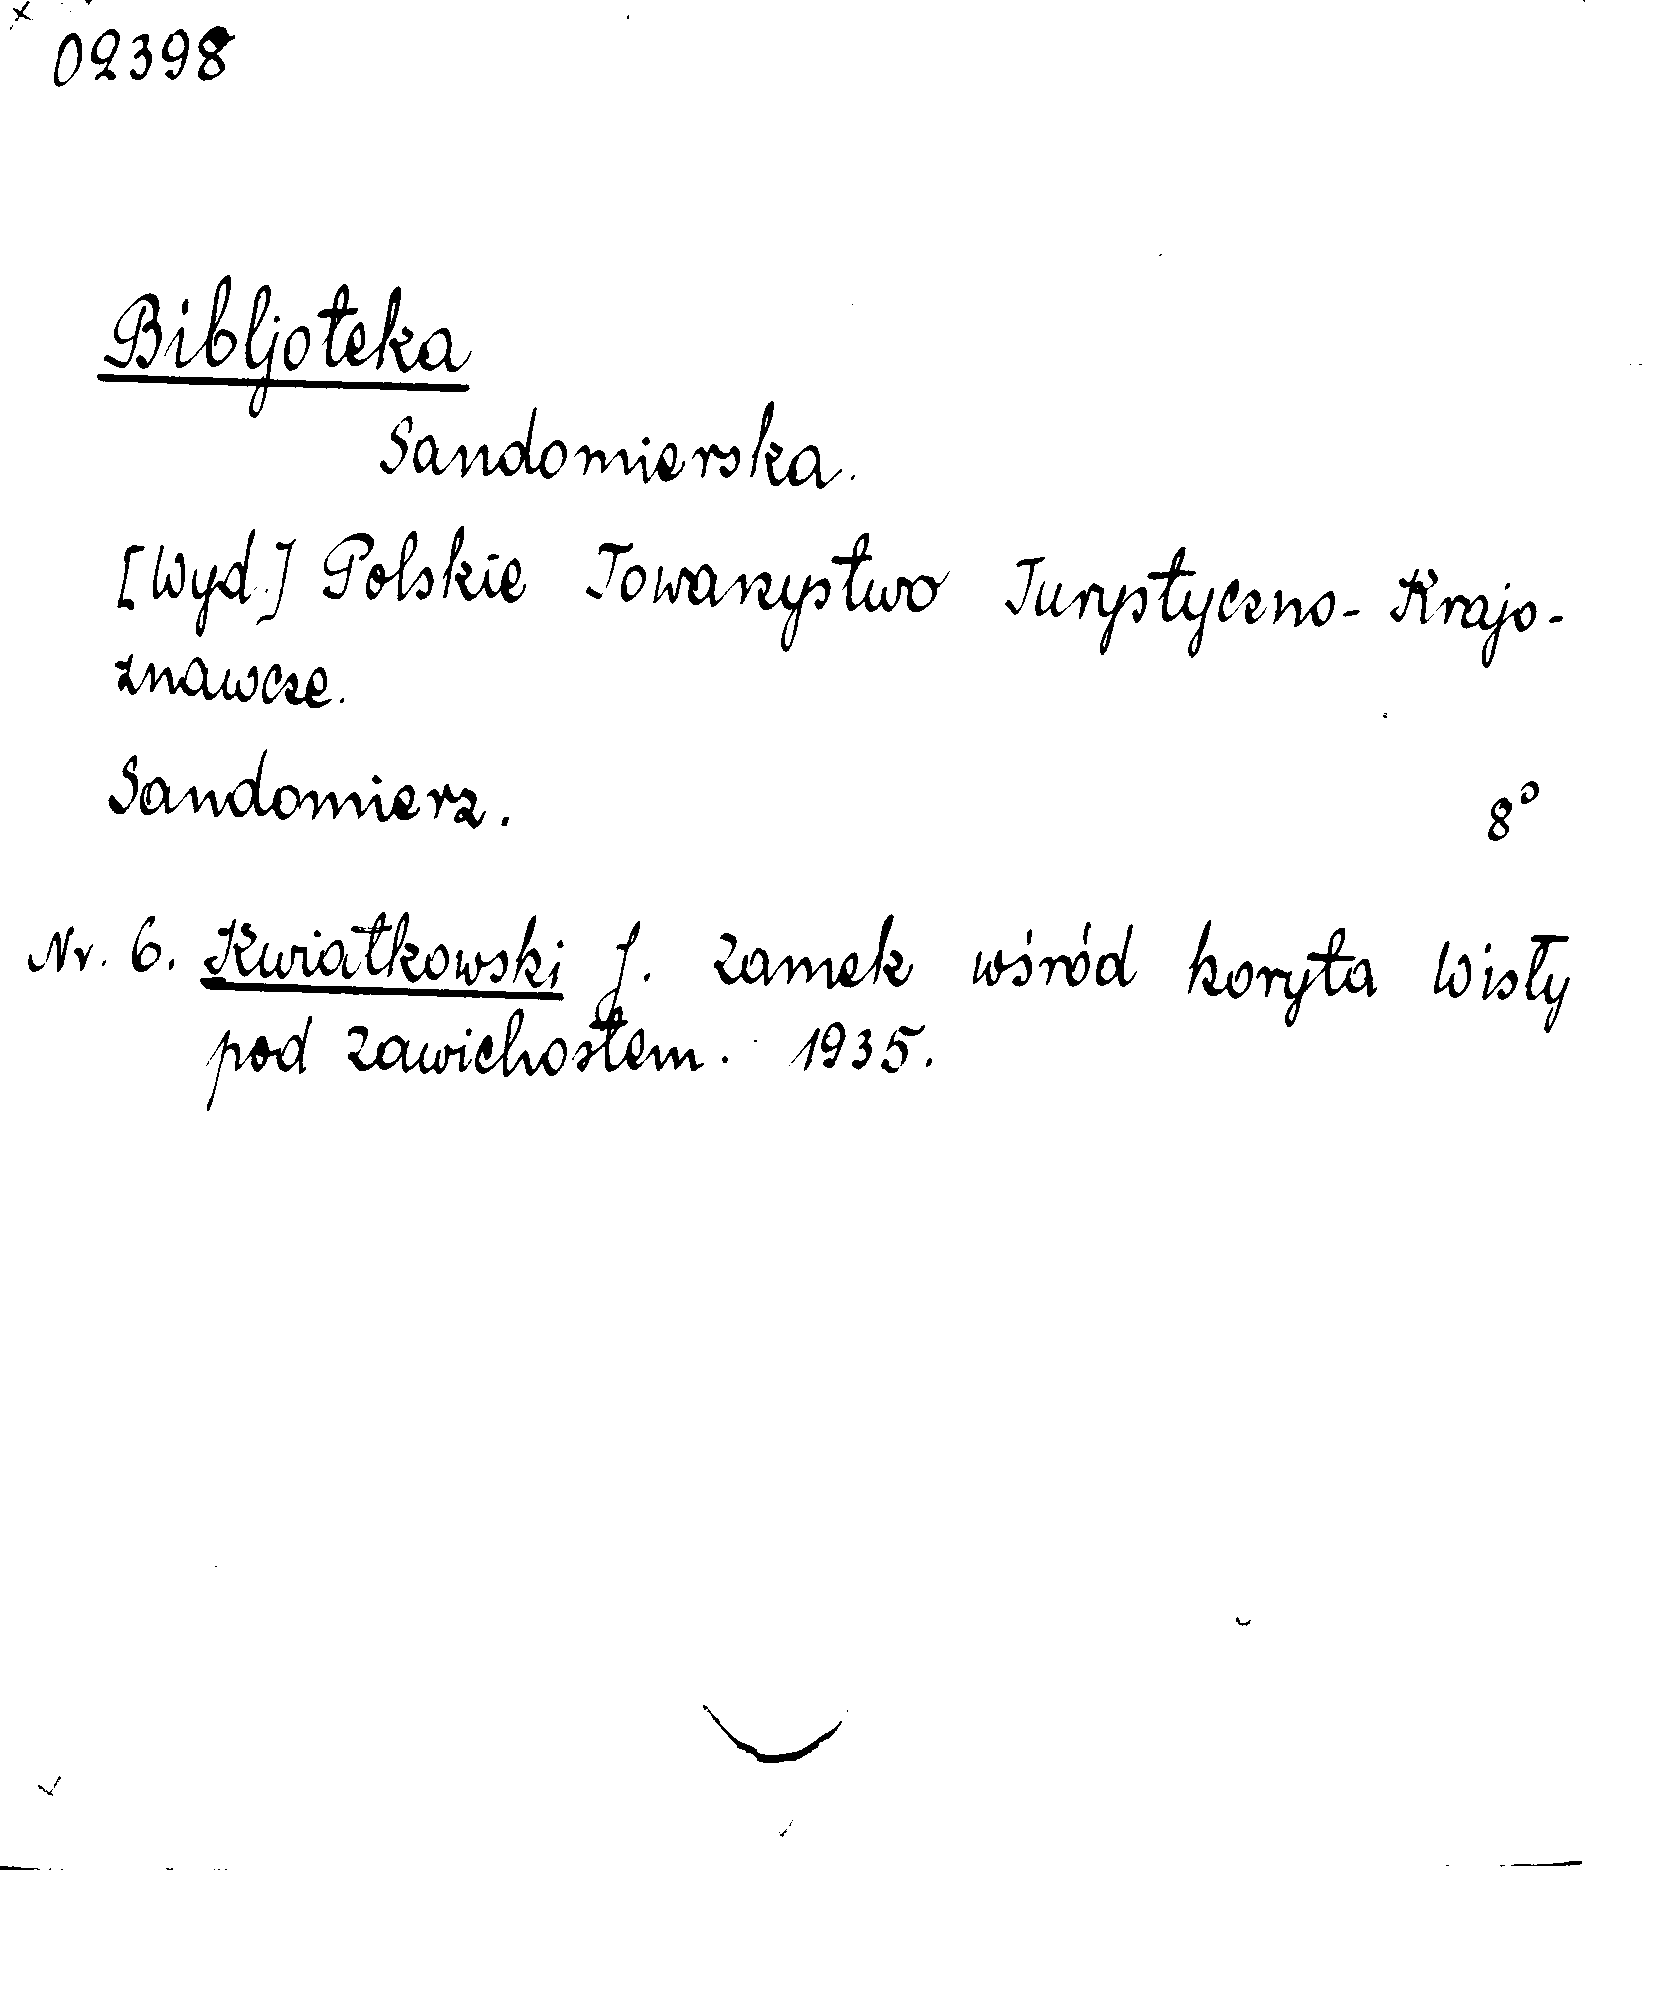 02398
Bibljoteka
Sandomierska.
[Wyd.] Polskie Towarzystwo Turystyczno-Krajo-
znawcze.
Sandomierz. 8°
Nr. 6. Kwiatkowski J. Zamek wśród koryta Wisły
pod Zawichostem. 1935.